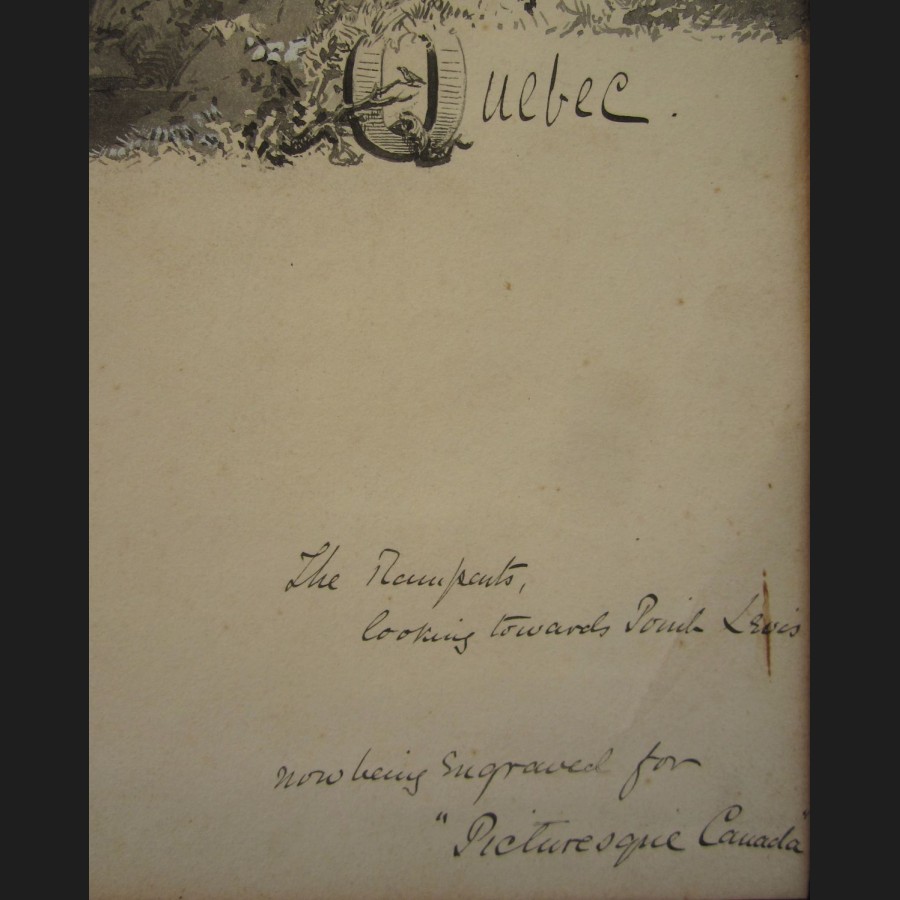 Quebec.
The Ramparts,
looking towards Point Levis
now being Engraved for
"Picturesque Canada"